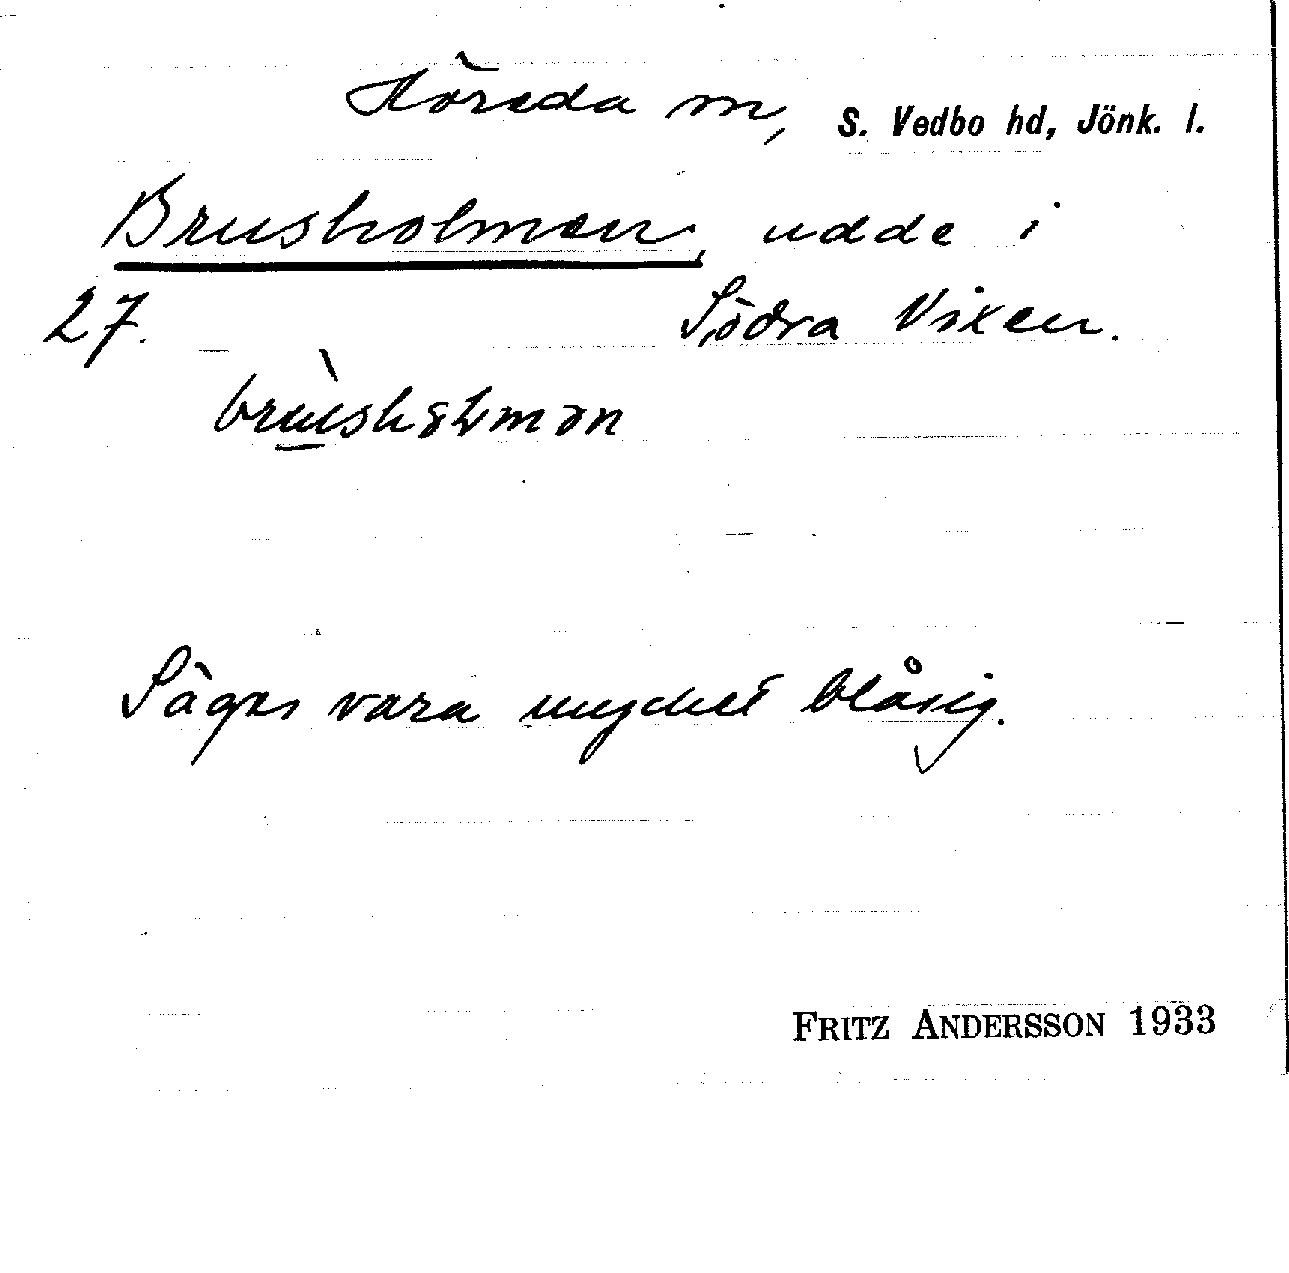 Höreda sn, S. Vedbo hd, Jönk. l.
Brusholmen, udde i
27. Södra Vixen.
Säges vara mycket blåsig.
FRITZ ANDERSSON 1933